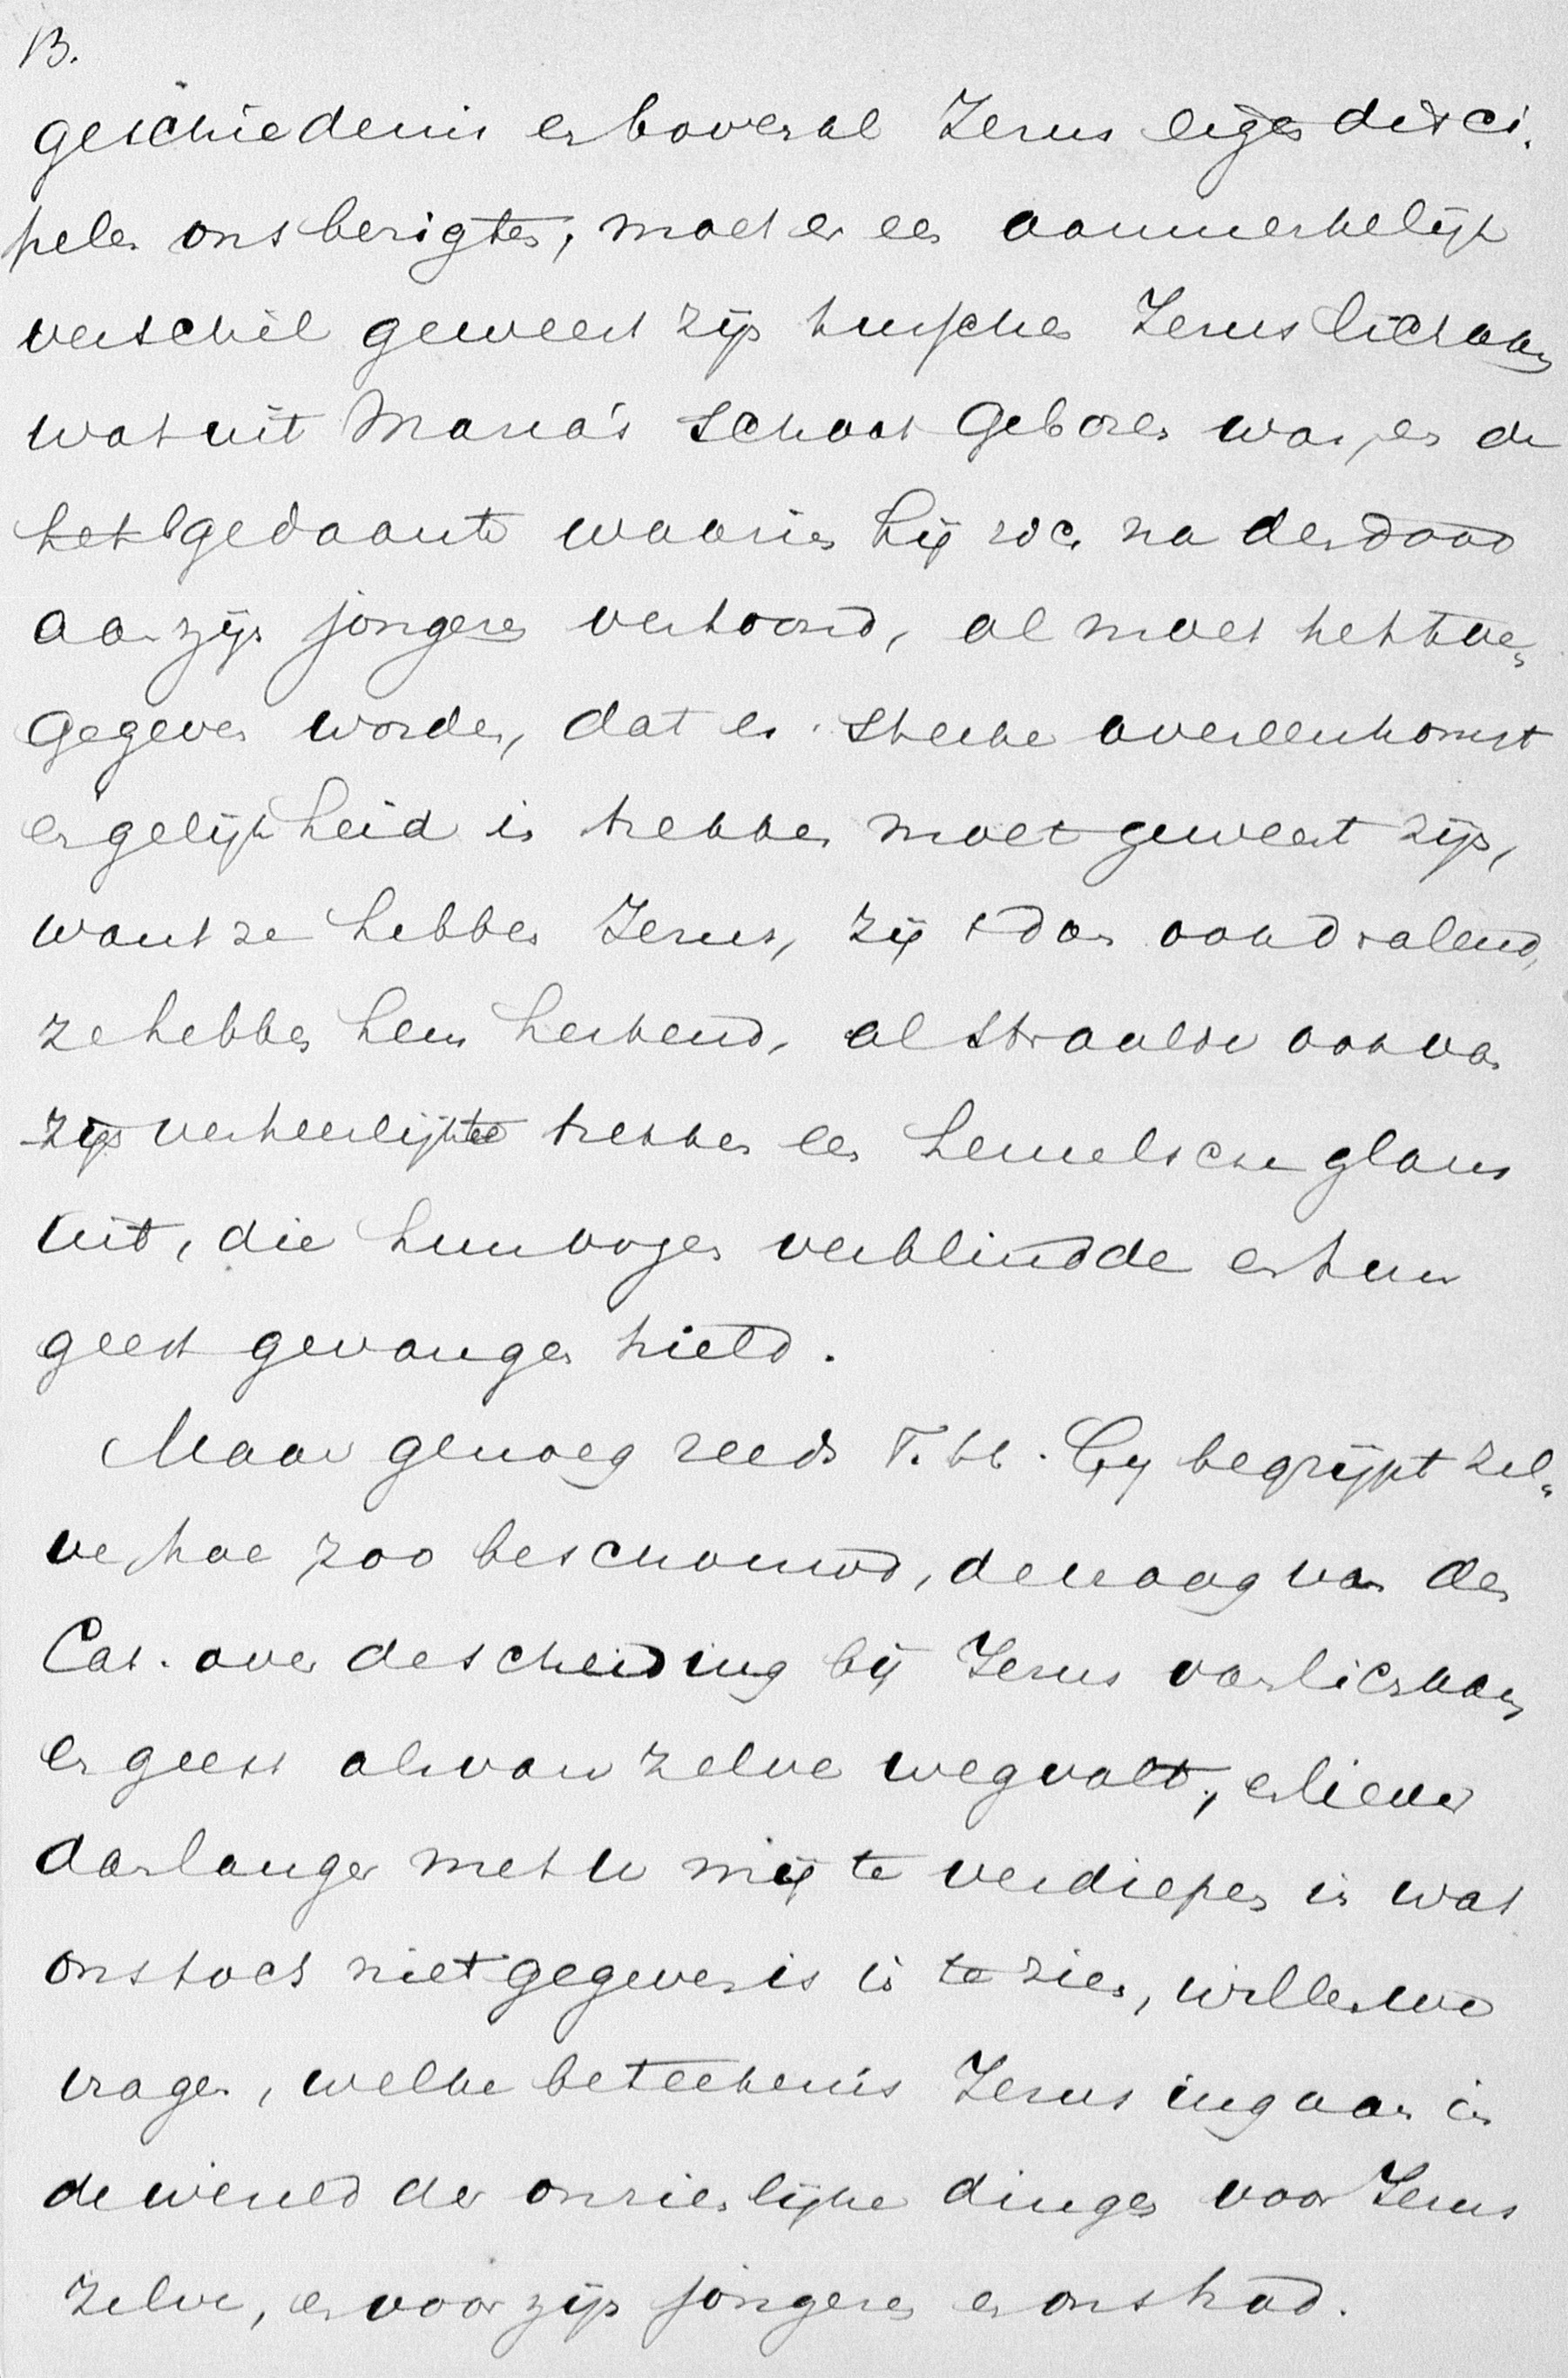 13.
geschiedenis en bovenal Jezus eigen disci-
pelen ons berigten, moet er een aanmerkelijk
verschil geweest zijn tusschen Jezus lichaam
wat uit Maria's schoot geboren was, en de
het gedaante waarin hij zich na den dood
aan zijn jongeren vertoond, al moet het toe-
gegeven worden, dat er sterke overeenkomst
en gelijkheid in trekken moet geweest zijn,
want ze hebben Jezus, zij 't dan ook dralend,
ze hebben hem herkend, al straalde ook van
zijn verheerlijkte trekken een hemelsche glans
uit, die hun oogen verblindde en hun
geest gevangen hield.
Maar genoeg reeds T. bl. Gij begrijpt zel-
ve hoe zoo beschouwd, de vraag van den
Cat. over de scheiding bij Jezus van lichaam
en geest als van zelve wegvalt, en liever
dan langer met u mij te verdiepen in wat
ons toch niet gegeven is in te zien, willen we
vragen, welke beteekenis Jezus ingaan in
de wereld der onzienlijke dingen voor Jezus
zelve, en voor zijn jongeren en ons had.